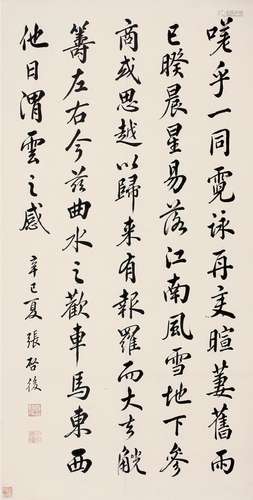 嗟乎一同霓詠再吏暄萋舊雨
已睽晨星易落江南風雪地下參
商或思越以歸来有報羅而大去觥
籌左右今茲曲水之歡車馬東西
他日渭雲之感
辛巳夏張啓後